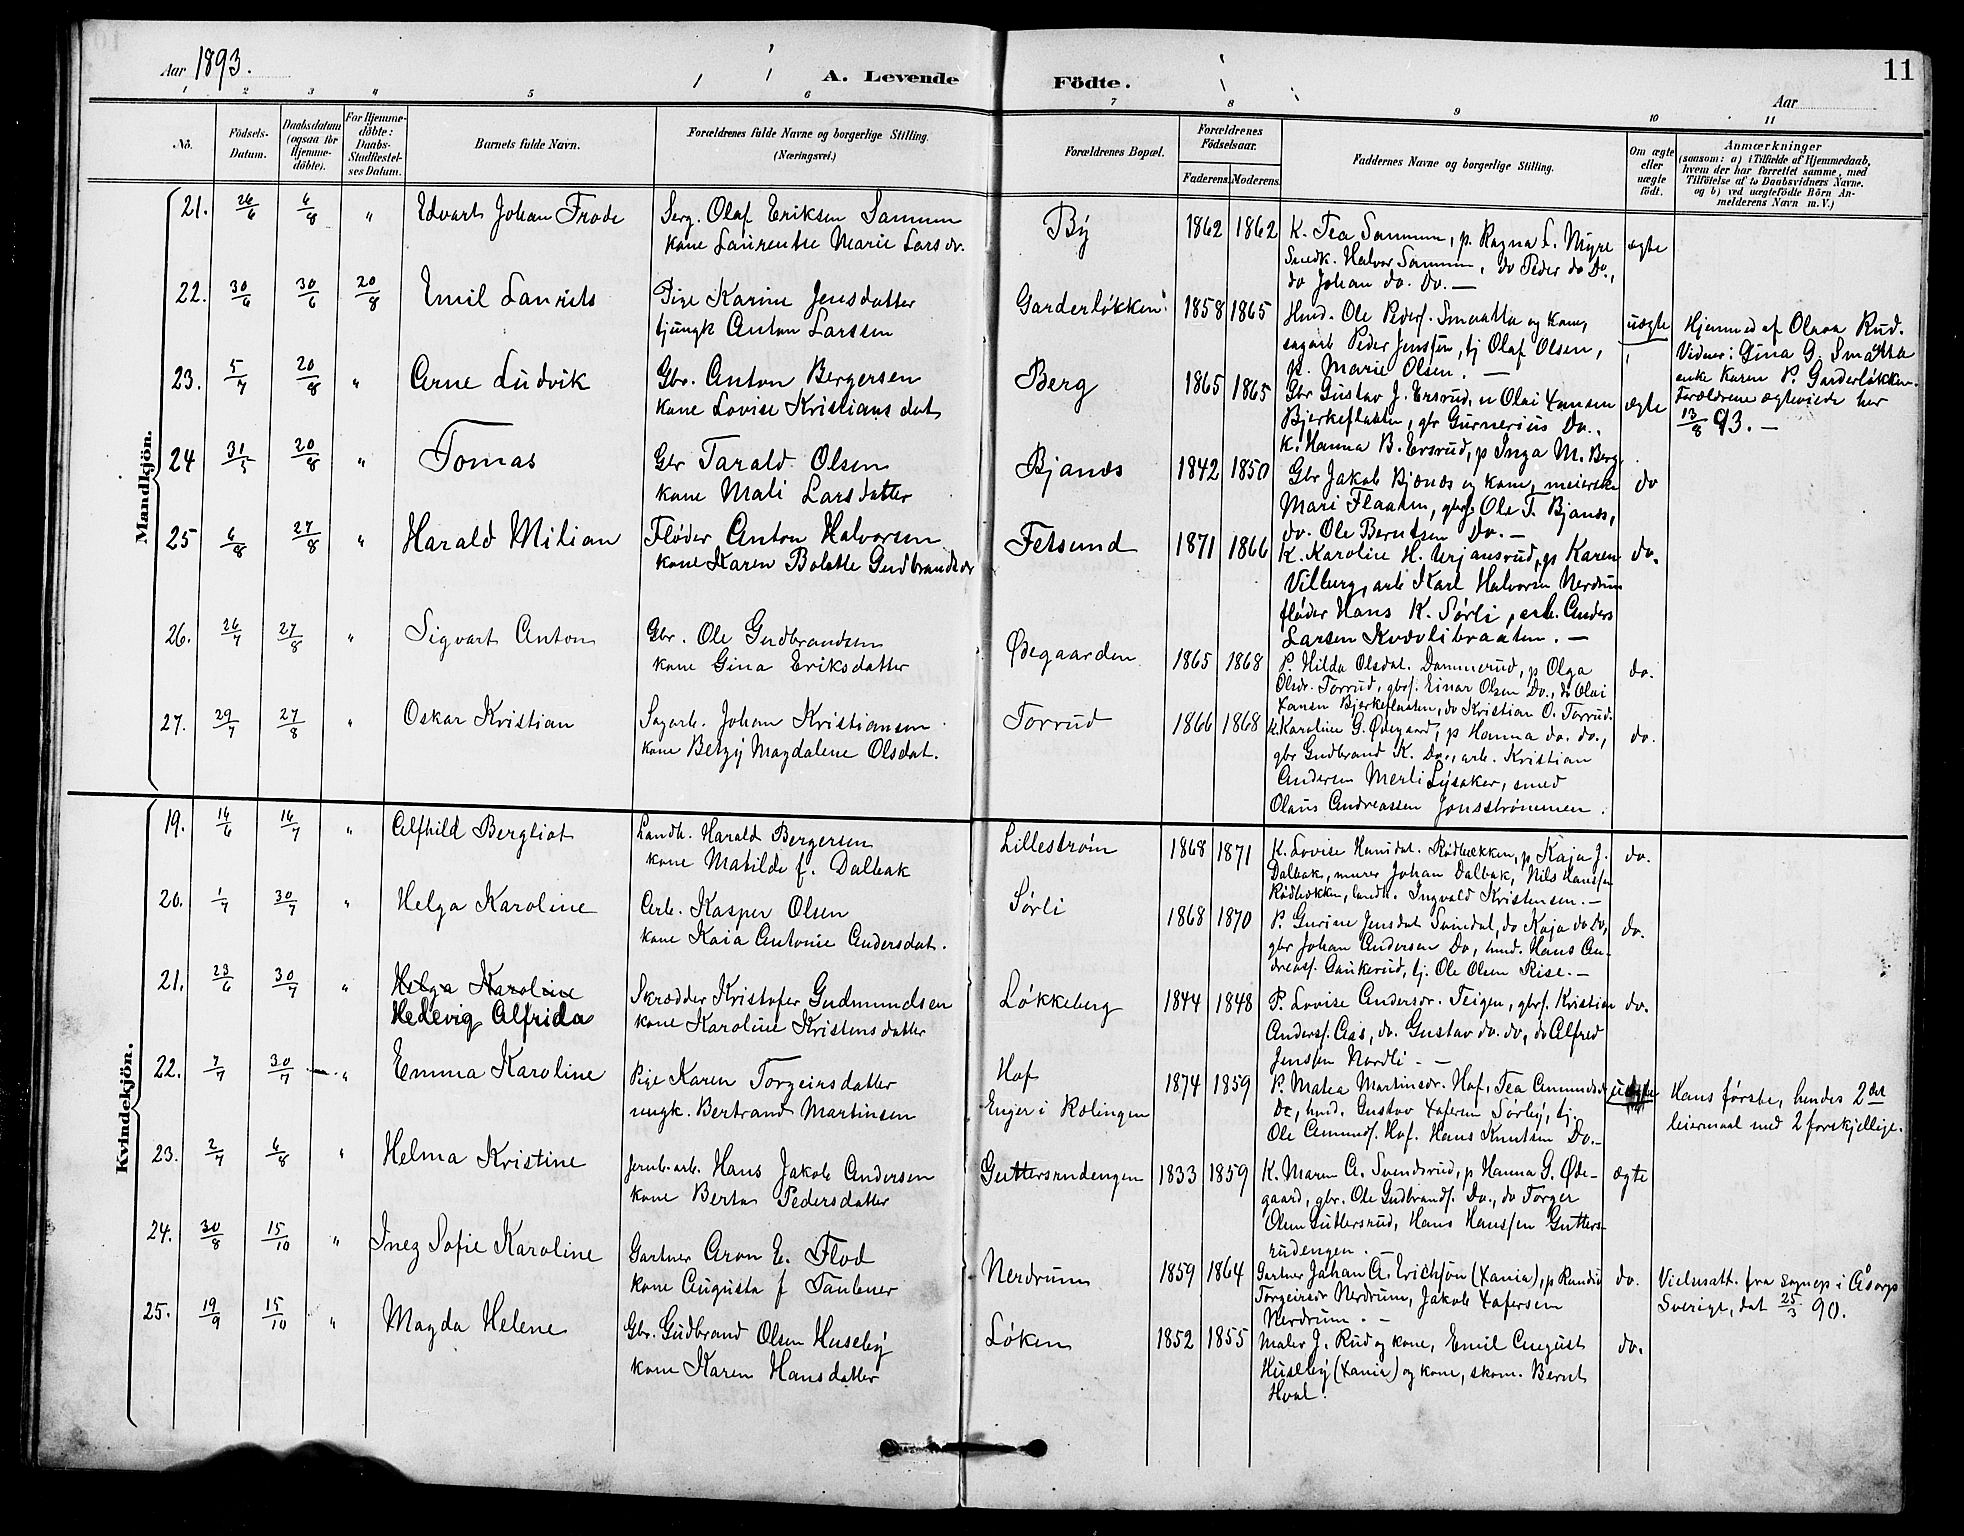 Aar 1893.
A. Levende Födte.
11
Aar
1 2 3 4 5 6 7 8 9 10 11
No.
Födsels-Datum.
Daabsdatum (ogsaa for Hjemme-döbte).
For Hjemme-döbte: Daabs-Stadfæstel-ses Datum.
Barnets fulde Navn.
Forældrenes fulde Navne og borgerlige Stilling. (Næringsvei.)
Forældrenes Bopæl.
Forældrenes Födselsaar.
Faderens. Moderens.
Faddernes Navne og borgerlige Stilling.
Om ægte eller uægte födt.
Anmærkninger
(saasom: a) i Tilfælde af Hjemmedaab, hvem der har forrettet samme, med Tilföielse af to Daabsvidners Navne. og b) ved uægtefödte Börn Anmelderens Navn m. V.)
Mandkjön.
21. 26/6 6/8 " Edvart Johan Frode
Serg. Olaf Eriksen Sannum
kone Laurentse Marie Larsdr.
By 1862 1862
K. Tea Sannum, p. Ragna L. Myre
Smedk. Halvor Sannum, do Peder do Do.,
do Johan do. Do. —
ægte
22. 30/6 30/6 20/8 Emil Laurits
Pige Karine Jensdatter
tjungk Anton Larssen
Garderløkken 1858 1865
Hmd. Ole Peders. Smaatta og kone,
sagarb Peder Jenssen, tj Olaf Olsen,
p. Marie Olsen. —
uægte
Hjemmed af Olava Rud.
Vidner: Gina G. Smaatta
enke Karen P. Garderløkken.
Forældrene ægteviede her
13/8 93. —
23. 5/7 20/8 " Arne Ludvik
Gbr. Anton Bergersen
kone Lovise Kristiansdat
Berg 1865 1865
Gbr Gustav J. Ersrud, u Olai Xansen
Bjerkeflaaten, gbr Gurnerius Do.,
k. Hanna B. Ersrud, p Inga M. Berg.
ægte
24 31/5 20/8 " Tomas
Gbr Tarald Olsen
kone Mali Larsdatter
Bjanes 1842 1850
Gbr Jakob Bjanæs og kone, meierske
Mari Flaaten, gbrs Ole T. Bjanes,
do. Ole Berntsen Do. —
do
25 6/8 27/8 " Harald Milian
Fløder Anton Halvorsen
kone Karen Bolette Gudbrandsdr
Fetsund 1871 1866
K. Karoline H. Urjansrud, p Karen
Vilburg, arb Karl Halvorsen Nerdrum
fløder Hans K. Sørli, arb. Anders
Larsen Kvævlibraaten. —
do.
26. 26/7 27/8 " Sigvart Anton
Gbr. Ole Gudbrandsen
kone Gina Eriksdatter
Ødegaarden 1865 1868
P. Hilda Olsdat. Dammerud, p Olga
Olsdr. Torrud, gbrs. Einar Olsen Do., do Olai
Xansen Bjerkeflaaten, do Kristian O. Torrud.
do.
27. 29/7 27/8 " Oskar Kristian
Sagarb. Johan Kristiansen
kone Betzy Magdalene Olsdat.
Torrud 1866 1868
k. Karoline G. Ødegaard, p Hanna do. do.,
gbr Gudbrand K. Do., arb. Kristian
Andersen Merli Lysaker, smed
Olaus Andreassen Jonsstrømmen.
do.
Kvindekjön.
19. 14/6 16/7 " Alfhild Bergliot
Landh. Harald Bergersen
kone Matilde f. Dalbak
Lillestrøm 1868 1871
K. Lovise Hansdat. Rødbækken, p Kaja J.
Dalbak, murer Johan Dalbak, Nils Hanssen
Rødbækken, landh. Ingvald Kristensen. —
do.
20. 1/7 30/7 " Helga Karoline
Arb. Kasper Olsen
kone Kaia Antonie Andersdat.
Sørli 1868 1870
P. Gurine Jensdat Svindal, do Kaja do Do,
gbr Johan Andersen Do, hmd. Hans An-
dreass. Gankerud, tj. Ole Olsen Rise. —
do.
21. 23/6 30/7 " Helga Karoline
Hedevig Alfrida
Skrædder Kristofer Gudmundsen
kone Karoline Kristensdatter
Løkkeberg 1844 1848
P. Lovise Andersdr. Teigen, gbrs. Kristian
Anderss. Aas, do. Gustav do. do, do Alfred
Jenssen Nordli —
do.
22. 7/7 30/7 " Emma Karoline
Pige Karen Torgeirsdatter
ungk. Bertrand Martinsen
Hof
Enger i Rølingen 1874 1859
P. Matea Martinsdr. Hof, Tea Amundsd.
Do, hmd. Gustav Xofersen Sørby, tj.
Ole Amunds. Hof. Hans Knutsen Do. —
uægte
Hans første, hendes 2det
leiermaal med 2 forskjellige.
23. 2/7 6/8 " Helma Kristine
Jernb.arb. Hans Jakob Andersen
kone Berta Pedersdatter
Guttersrudengen 1833 1859
K. Maren A. Svendsrud, p Hanna G. Øde-
gaard, gbr. Ole Gudbrands. Do., do Torger
Olsen Guttersrud, Hans Hanssen Gutters-
rudengen. —
ægte
24. 30/8 15/10 " Inez Sofie Karoline
Gartner Aron E. Flod
kone Augusta f Taubner
Nerdrum 1859 1864
Gartner Johan A. Erichson (Xania), p Randid
Torgeirsdr Nerdrum, Jakob Xofersen
Nerdrum. —
do.
Vielsatt. fra sognep i Åsarp
Sverige, dat 25/3 90.
25. 19/9 15/10 " Magda Helene
Gbr. Gudbrand Olsen Huseby
kone Karen Hansdatter
Løken 1852 1855
Maler J. Rud og kone, Emil August
Huseby (Xania) og kone, skom. Bernt
Hval.
do.